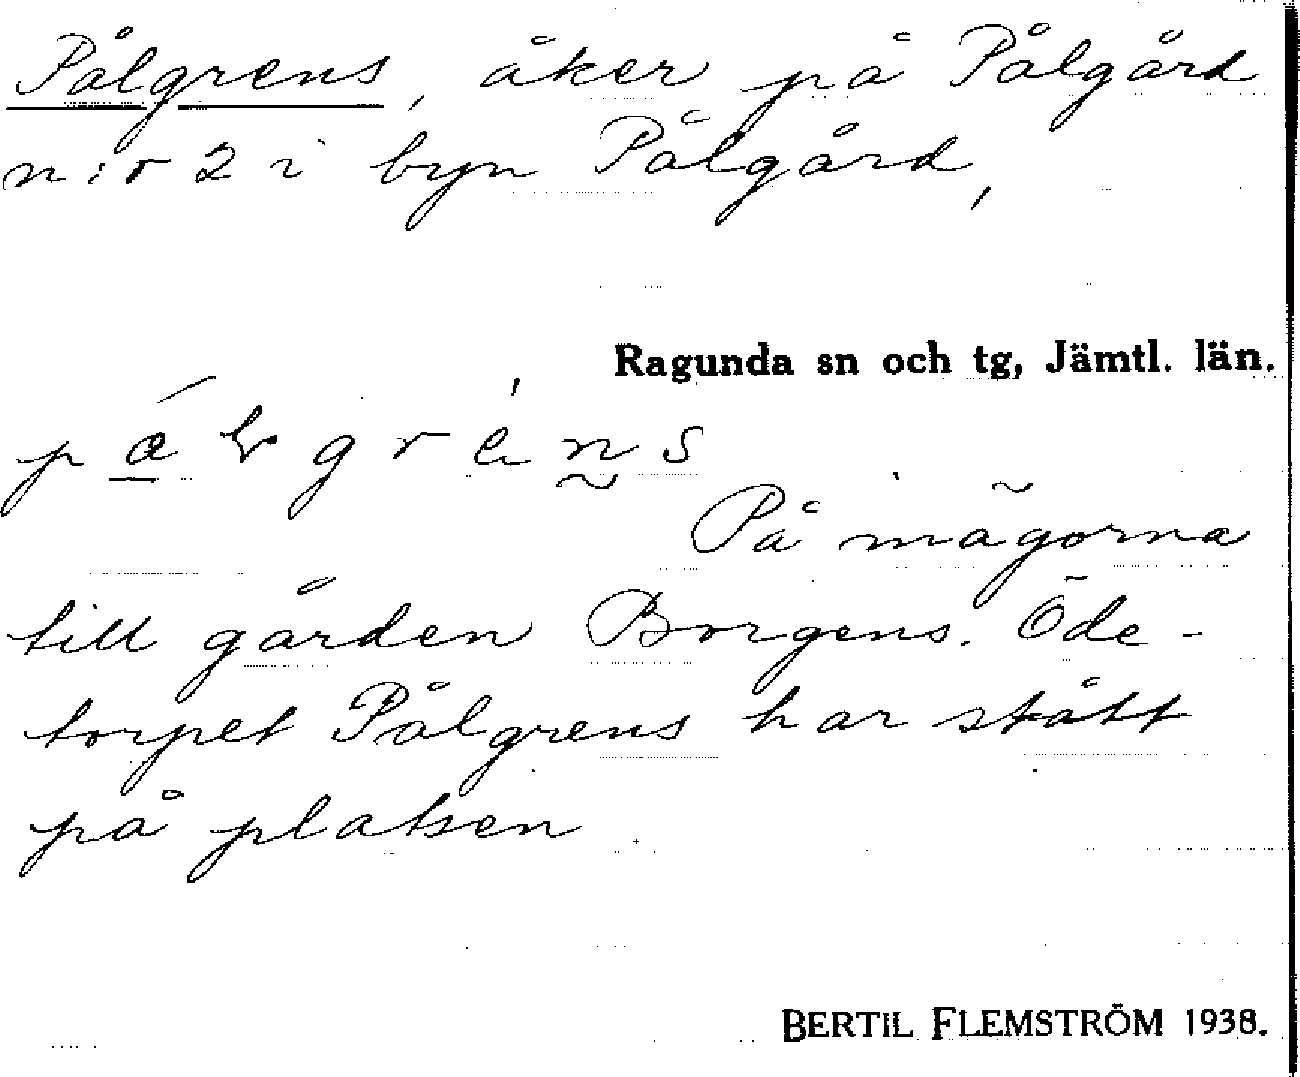 Pålgrens, åker på Pålgård
n:r 2 i byn Pålgård,
Ragunda sn och tg, Jämtl. län.
På inägorna
till gården Borgens. Öde-
torpet Pålgrens har stått
på platsen.
BERTIL FLEMSTRÖM 1938.